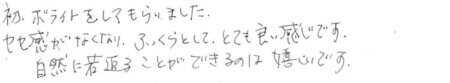 初、ボライトをしてもらいました。
セセ感がなくなり、ふっくらとして、とても良い感じです。
自然に若返ることができるのは嬉しいです。